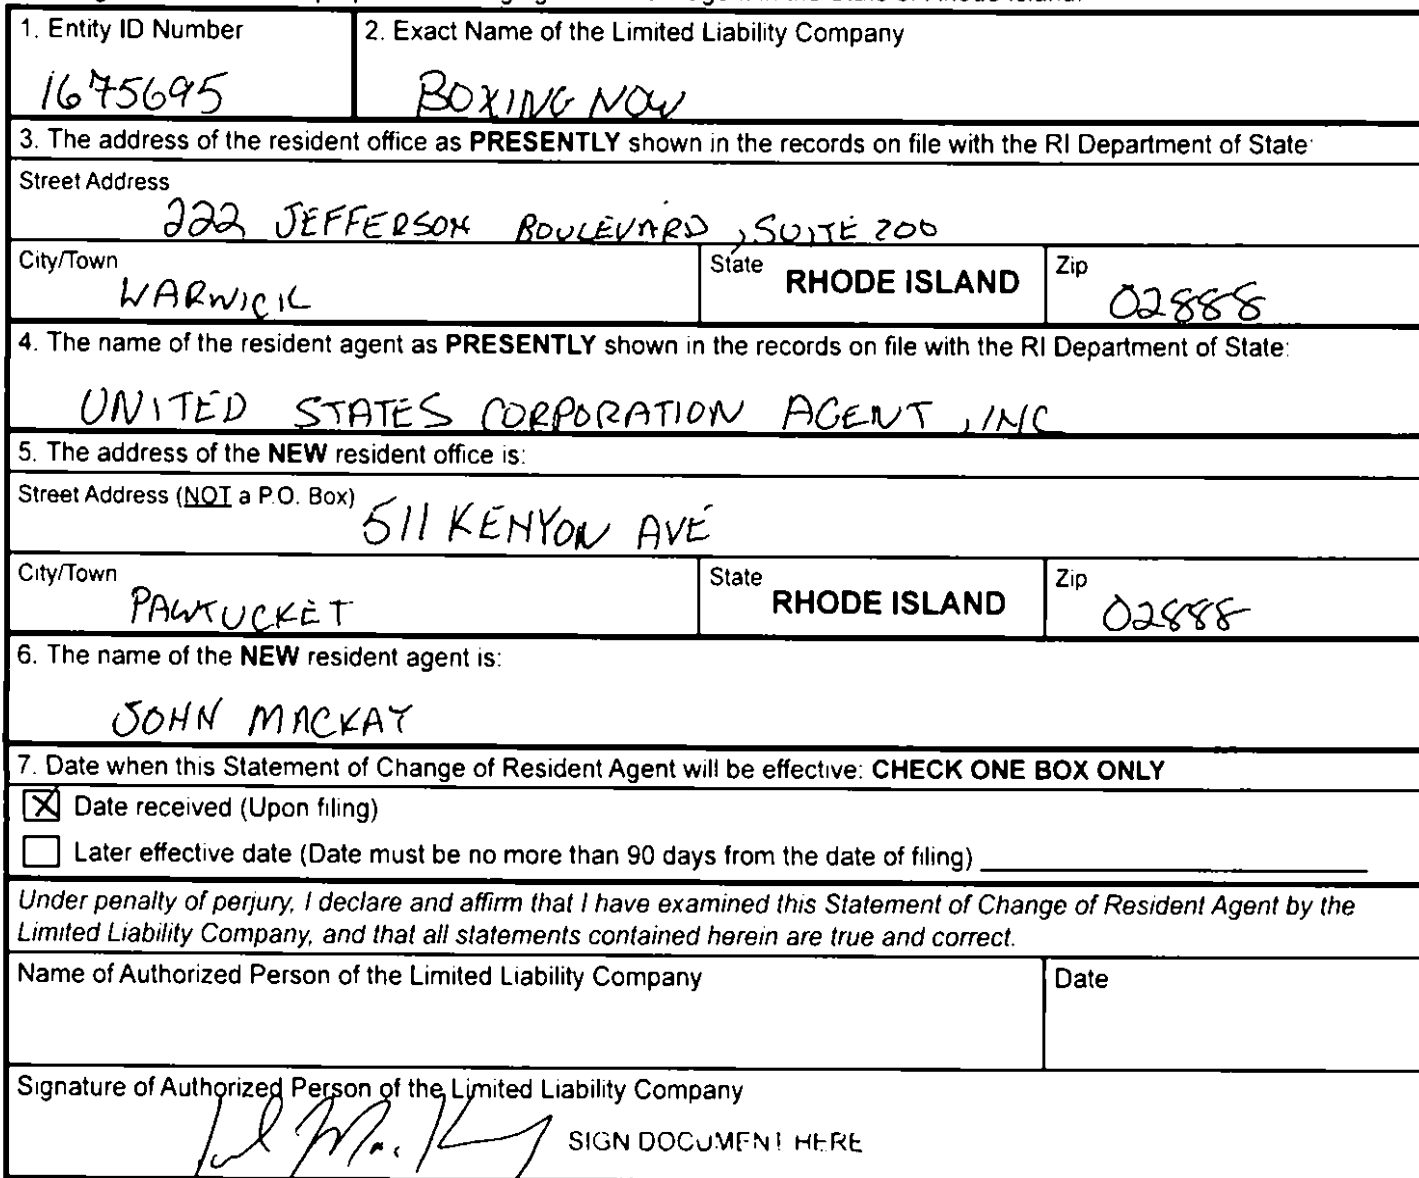 1. Entity ID Number
1675695
2. Exact Name of the Limited Liability Company
BOXING NOW
3. The address of the resident office as PRESENTLY shown in the records on file with the RI Department of State:
Street Address
222 JEFFERSON BOULEVARD, SUITE 200
City/Town
WARWICK
State RHODE ISLAND
Zip
02888
4. The name of the resident agent as PRESENTLY shown in the records on file with the RI Department of State:
UNITED STATES CORPORATION AGENT, INC
5. The address of the NEW resident office is:
Street Address (NOT a P.O. Box)
511 KENYON AVE
City/Town
PAWTUCKET
State RHODE ISLAND
Zip
02888
6. The name of the NEW resident agent is:
JOHN MACKAY
7. Date when this Statement of Change of Resident Agent will be effective: CHECK ONE BOX ONLY
Date received (Upon filing)
Later effective date (Date must be no more than 90 days from the date of filing)
Under penalty of perjury, I declare and affirm that I have examined this Statement of Change of Resident Agent by the
Limited Liability Company, and that all statements contained herein are true and correct.
Name of Authorized Person of the Limited Liability Company
Date
Signature of Authorized Person of the Limited Liability Company
SIGN DOCUMENT HERE